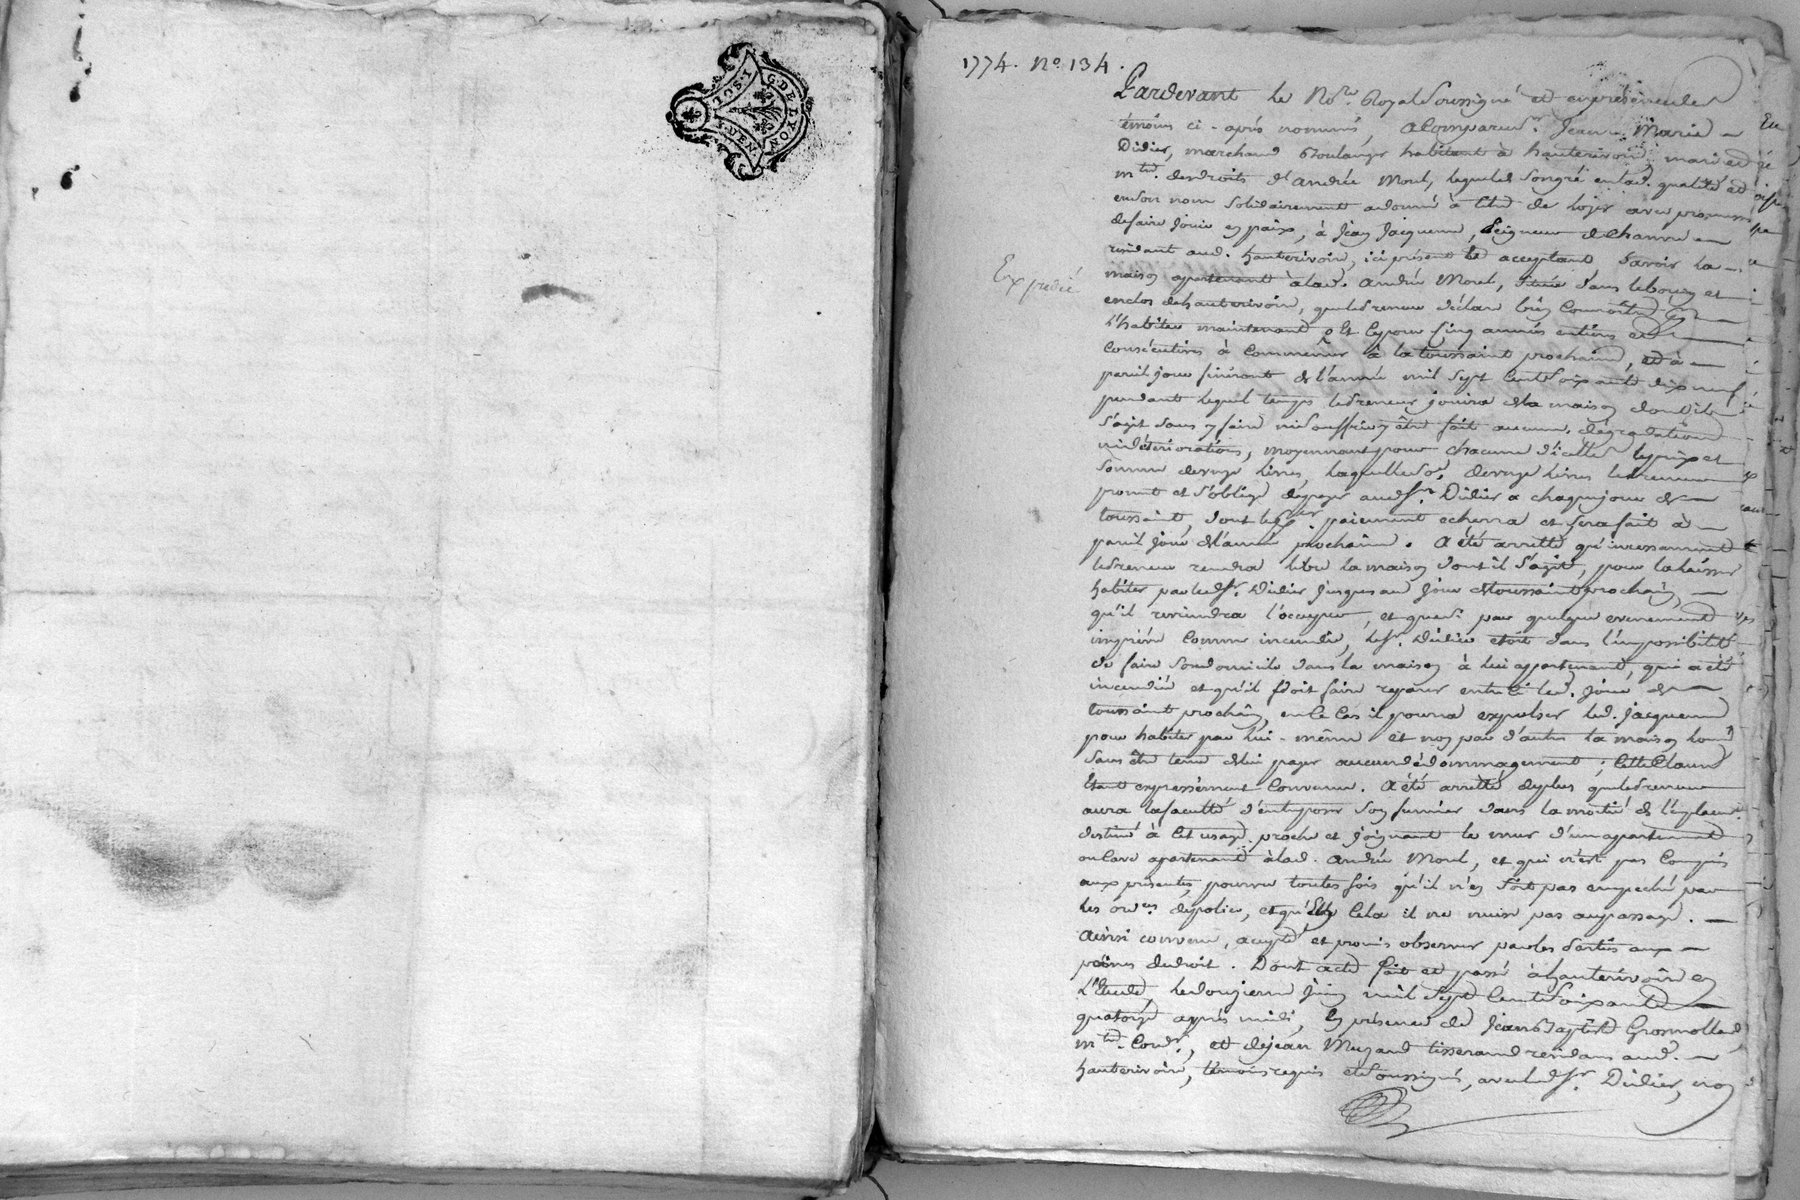 G. DE LYON
I. SOL I.
I. DEN.
1774. No. 134.
Pardevant le Nore. Royal Soussigné et en présence des
témoins ci-après nommés, a Comparu sr. Jean Marie
Didier, marchand Boulanger habitant à hauterivoire, mari et
mtre. des droits d'andrée Morel, lequel de son gré en lad. qualité et
en son nom solidairement a donné à titre de loyer avec promesse
de faire jouir en paix, à Jean Jacquemme, Peigneur de Chanvre
residant aud. hauterivoire, ici présent et acceptant, Savoir la
maison apartenant à lad. andrée Morel, Située dans le bourg et
Expedié
enclos de hauterivoire, que le Preneur déclare bien Connoître
L'habiter maintenant, et Ce pour Cinq années entières et
Consécutives à Commencer à la toussaint prochaine, et à
pareil jour finiront de l'année mil Sept Cent Soixante dix neuf
pendant lequel temps le Preneur jouira de la maison dont il
s'agit sans y faire ni souffrir y être fait aucune dégradation
ni détérioration, moyennant pour chacune d'icelles le prix et
Somme de vingt livres, laquelle Se. de vingt livres le Preneur
promet et s'oblige de payer aud. Sr. Didier a chaque jour de
toussaint, dont le per. paiement echerra et sera fait à
pareil jour de l'année prochaine. A été arretté qu'incessamment
le Preneur rendra libre la maison dont il s'agit, pour la laisser
habiter par led. Sr. Didier jusques au jour de toussaint prochain,
qu'il reviendra l'occuper, et que si par quelque evenement
imprévu Comme incendie, led. Sr. Didier etoit dans l'impossibilité
de faire son domicile dans la maison à lui appartenant, qui a été
incendiée et qu'il doit faire reparer entre Ci led. jour de
toussaint prochain, en Ce Cas il pourra expulser led. Jacquemme
pour habiter par lui-même et non par d'autres la maison louée
Sans être tenu de lui payer aucun dédommagement; Cette Clause
Etant expressément Convenue. A été arretté de plus que le Preneur
aura la faculté d'entreposer Son fumier dans la moitié de l'emplacem.
destiné à Cet usage, proche et joignant le mur d'un apartement
ou Cave apartenant à lad. andrée Morel, et qui n'est pas Compris
aux présentes, pourvu toutes fois qu'il n'en Soit pas empeché par
les ordces. de police, et qu'en Cela il ne nuise pas au passage.
Ainsi convenu, accepté et promis observer par les Parties aux
peines de droit. Dont acte fait et passé à hauterivoire en
L'Etude, le douzieme Juin mil Sept Cent Soixante
quatorze après midi, En présence de Jean Baptiste Grosmollard,
md. Cordr., et de Jean Muzard tisserand residans aud.
hauterivoire, témoins requis et Soussignés, avec led. Sr. Didier, non